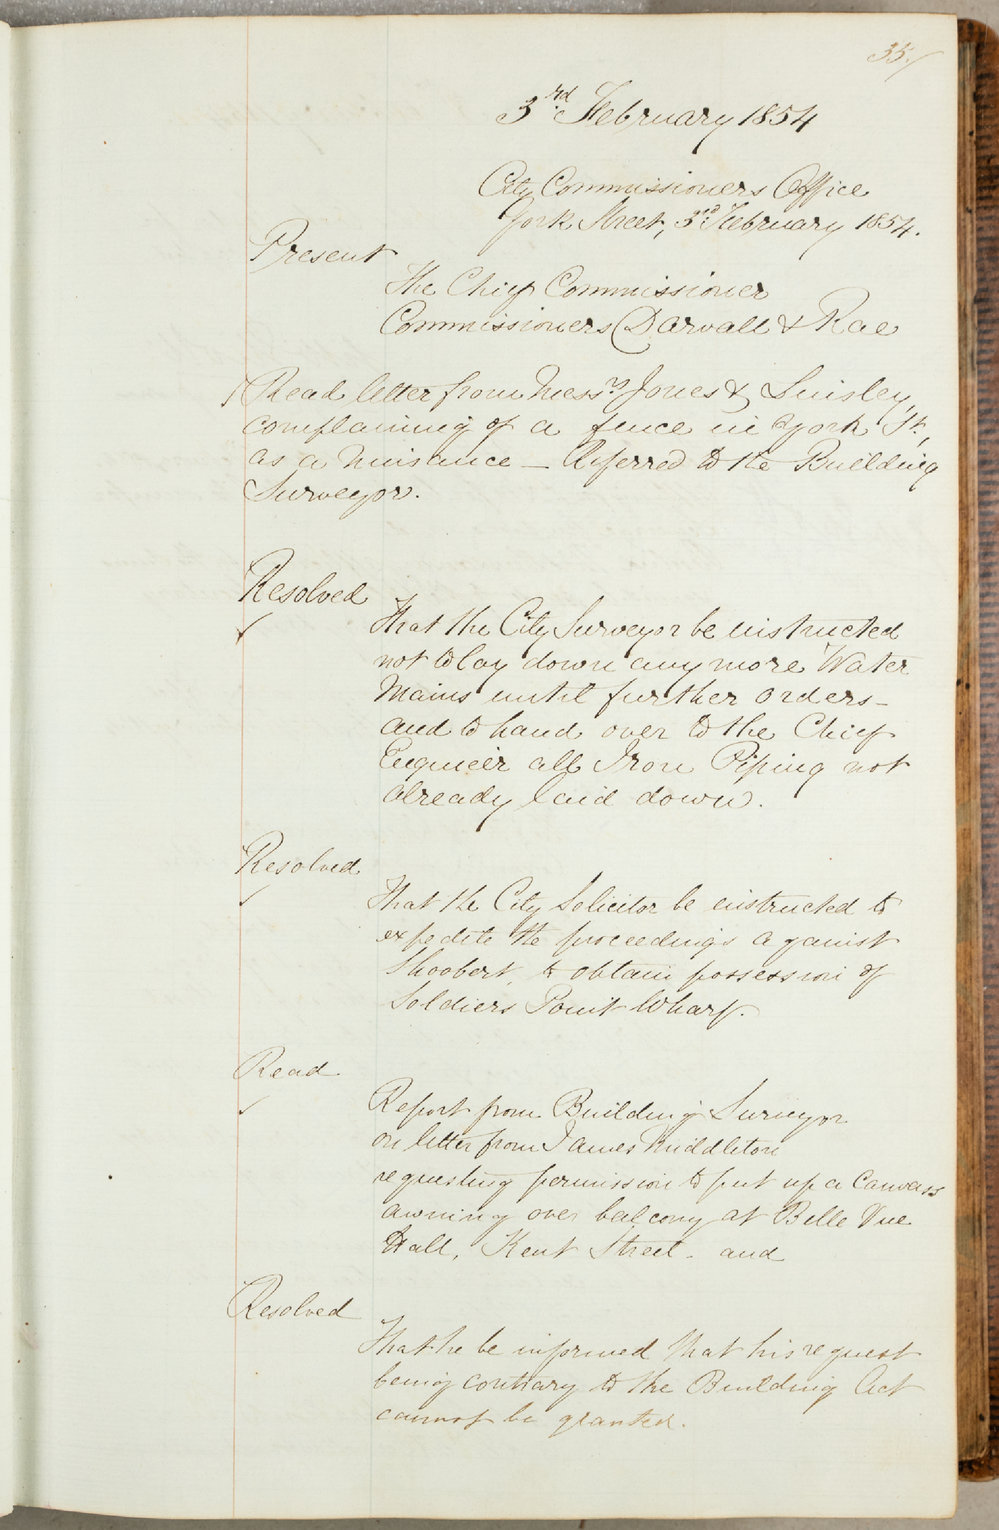 35./
3rd February 1854
City Commissioners Office
York Street, 3rd February 1854.
Present
The Chief Commissioner
Commissioners Darvall & Rae
Read letter from Messrs Jones &
complaining of a fence in York St.,
as a Nuisance — Referred to the Building
Surveyor.
Resolved
That the City Surveyor be instructed
not to lay down any more Water
Mains until further orders –
and to hand over to the Chief
Engineer all Iron Piping not
already laid down.
Resolved
That the City Solicitor be instructed to
expedite the proceedings against
Shoobert, to obtain possession of
Soldiers Point Wharf.
Read
Report from Building Surveyor
on letter from James Middleton
requesting permission to put up a Canvass
awning over balcony at Belle Vue
Hall, Kent Street – and
Resolved
That he be informed that his request
being contrary to the Building Act
cannot be granted.